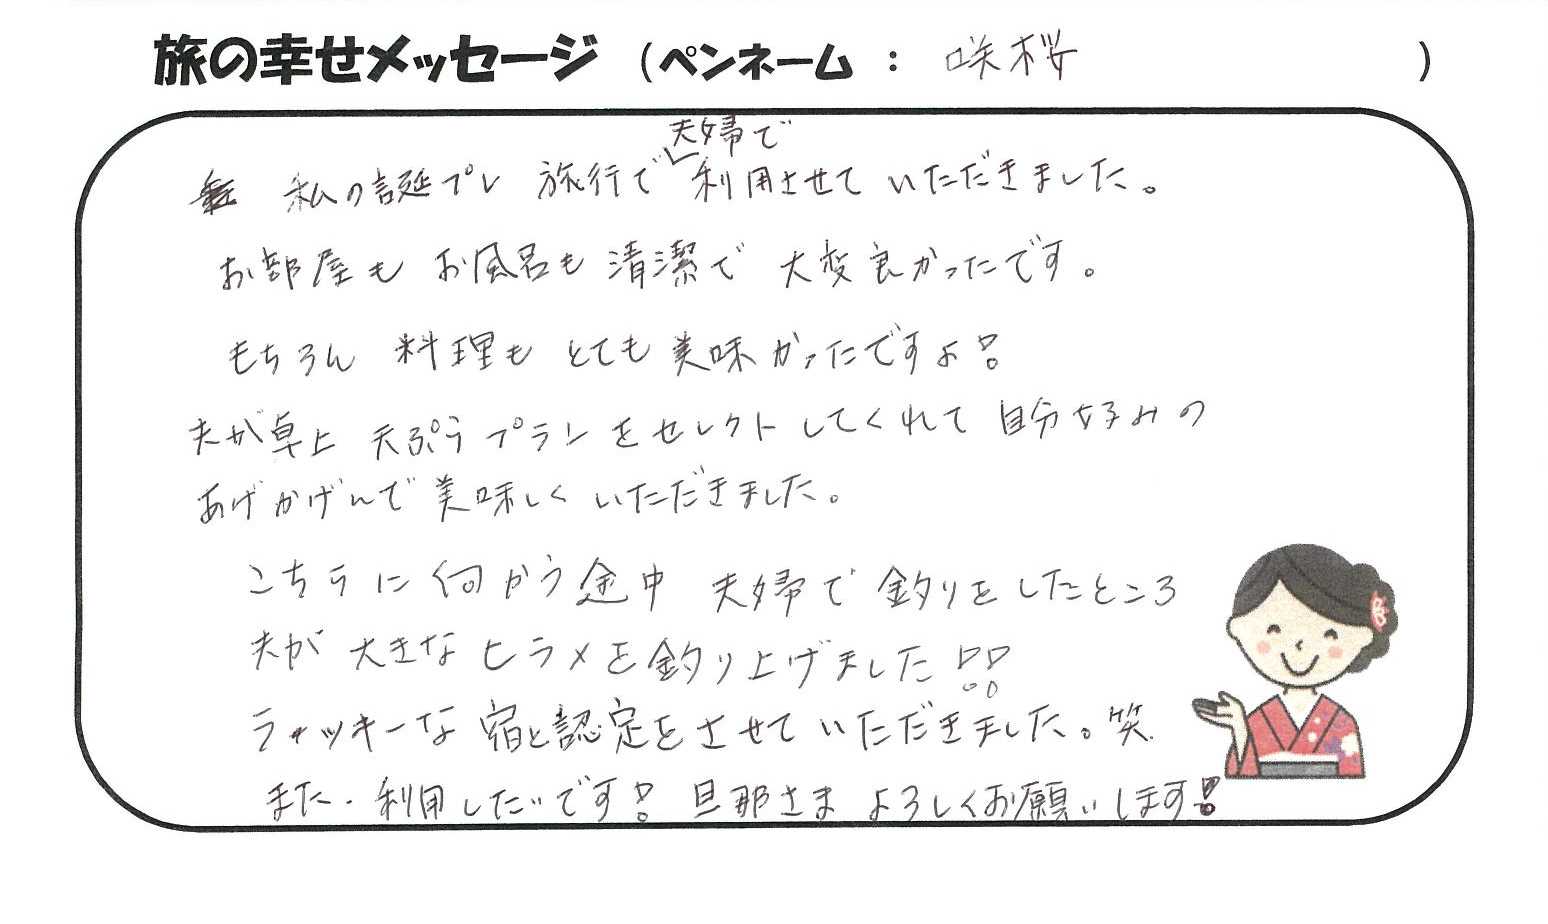 旅の幸せメッセージ (ペンネーム : 咲桜 )
私の誕プレ 旅行で夫婦で利用させて いただきました。
お部屋も お風呂も 清潔で 大変良かったです。
もちろん 料理も とても 美味かったですよ!
夫が卓上 天ぷら プランをセレクトしてくれて 自分好みの
あげかげんで 美味しく いただきました。
こちらに 向かう途中 夫婦で 釣りをしたところ
夫が 大きな ヒラメを釣り上げました!!
ラッキーな 宿と認定をさせて いただきました。笑
また、利用したいです! 旦那さま よろしくお願いします!